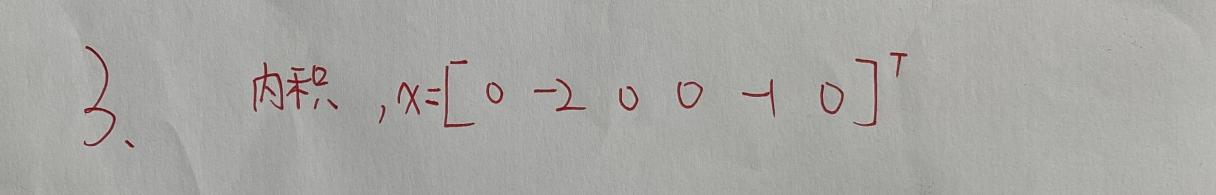 3、 内积 , x=[ 0 -2 0 0 -1 0 ]ᵀ